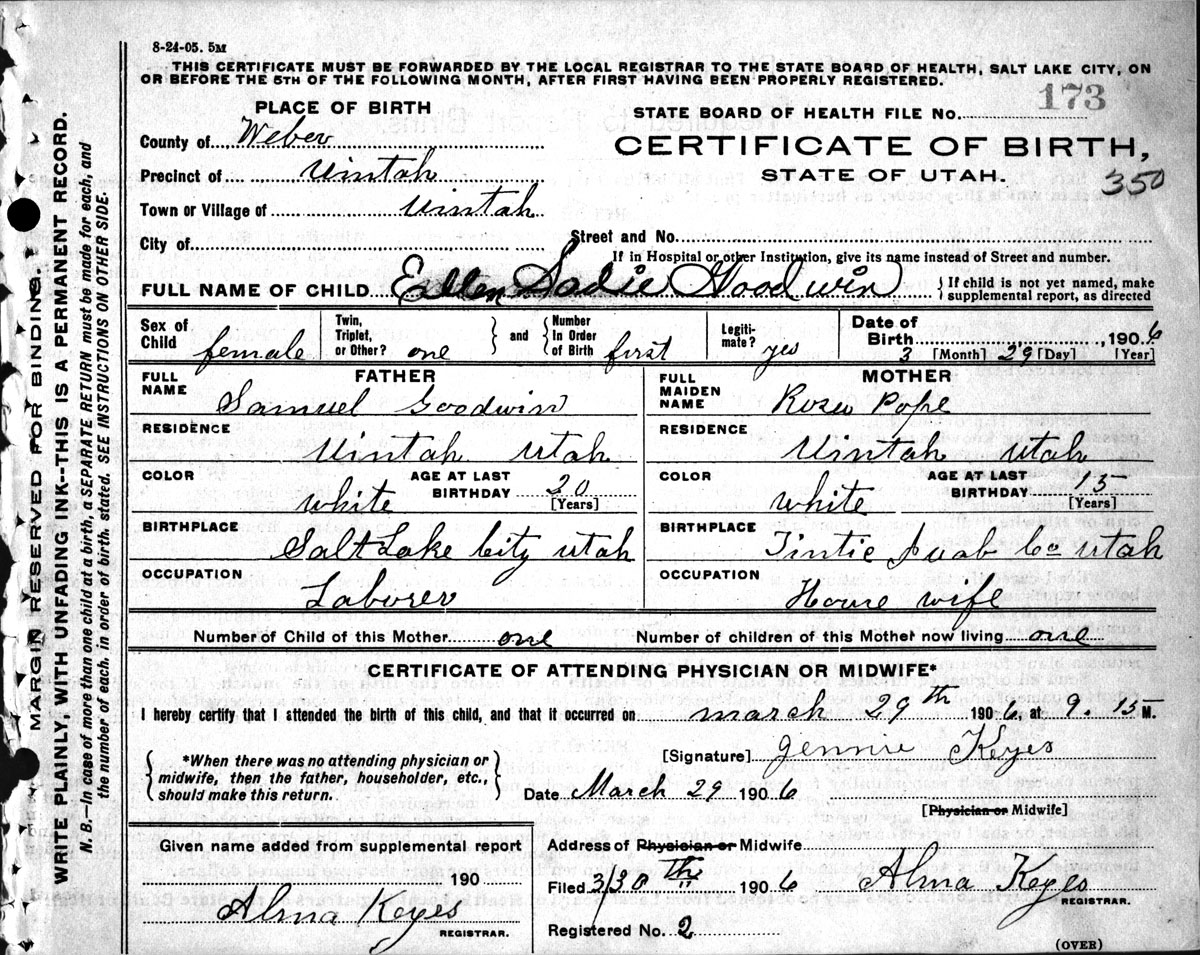 8-24-05. 5M
THIS CERTIFICATE MUST BE FORWARDED BY THE LOCAL REGISTRAR TO THE STATE BOARD OF HEALTH, SALT LAKE CITY, ON
OR BEFORE THE 5TH OF THE FOLLOWING MONTH, AFTER FIRST HAVING BEEN PROPERLY REGISTERED.
PLACE OF BIRTH
County of Weber
Precinct of Uintah
Town or Village of Uintah
City of
STATE BOARD OF HEALTH FILE No. 173
CERTIFICATE OF BIRTH,
STATE OF UTAH.
350
Street and No.
If in Hospital or other Institution, give its name instead of Street and number.
FULL NAME OF CHILD Ellen Sadie Goodwin
If child is not yet named, make
supplemental report, as directed
Sex of Child female
Twin, Triplet, or Other? one
and
Number In Order of Birth first
Legiti-mate? yes
Date of Birth 3 [Month] 29 [Day] , 1906 [Year]
FATHER
FULL NAME Samuel Goodwin
RESIDENCE Uintah Utah
COLOR white
AGE AT LAST BIRTHDAY 20 [Years]
BIRTHPLACE Salt Lake City Utah
OCCUPATION Laborer
MOTHER
FULL MAIDEN NAME Rosea Pope
RESIDENCE Uintah Utah
COLOR white
AGE AT LAST BIRTHDAY 15 [Years]
BIRTHPLACE Tintic Juab Co Utah
OCCUPATION House wife
Number of Child of this Mother one
Number of children of this Mother now living one
CERTIFICATE OF ATTENDING PHYSICIAN OR MIDWIFE*
I hereby certify that I attended the birth of this child, and that it occurred on march 29th 1906, at 9.15 M.
*When there was no attending physician or
midwife, then the father, householder, etc.,
should make this return.
[Signature] Jennie Keyes
Date March 29 1906
[Physician or Midwife]
Given name added from supplemental report
190
Alma Keyes
REGISTRAR.
Address of Physician or Midwife
Filed 3/30th 1906 Alma Keyes
REGISTRAR.
Registered No. 2
(OVER)
MARGIN RESERVED FOR BINDING.
WRITE PLAINLY, WITH UNFADING INK--THIS IS A PERMANENT RECORD.
N. B.--In case of more than one child at a birth, a SEPARATE RETURN must be made for each, and
the number of each, in order of birth, stated. SEE INSTRUCTIONS ON OTHER SIDE.